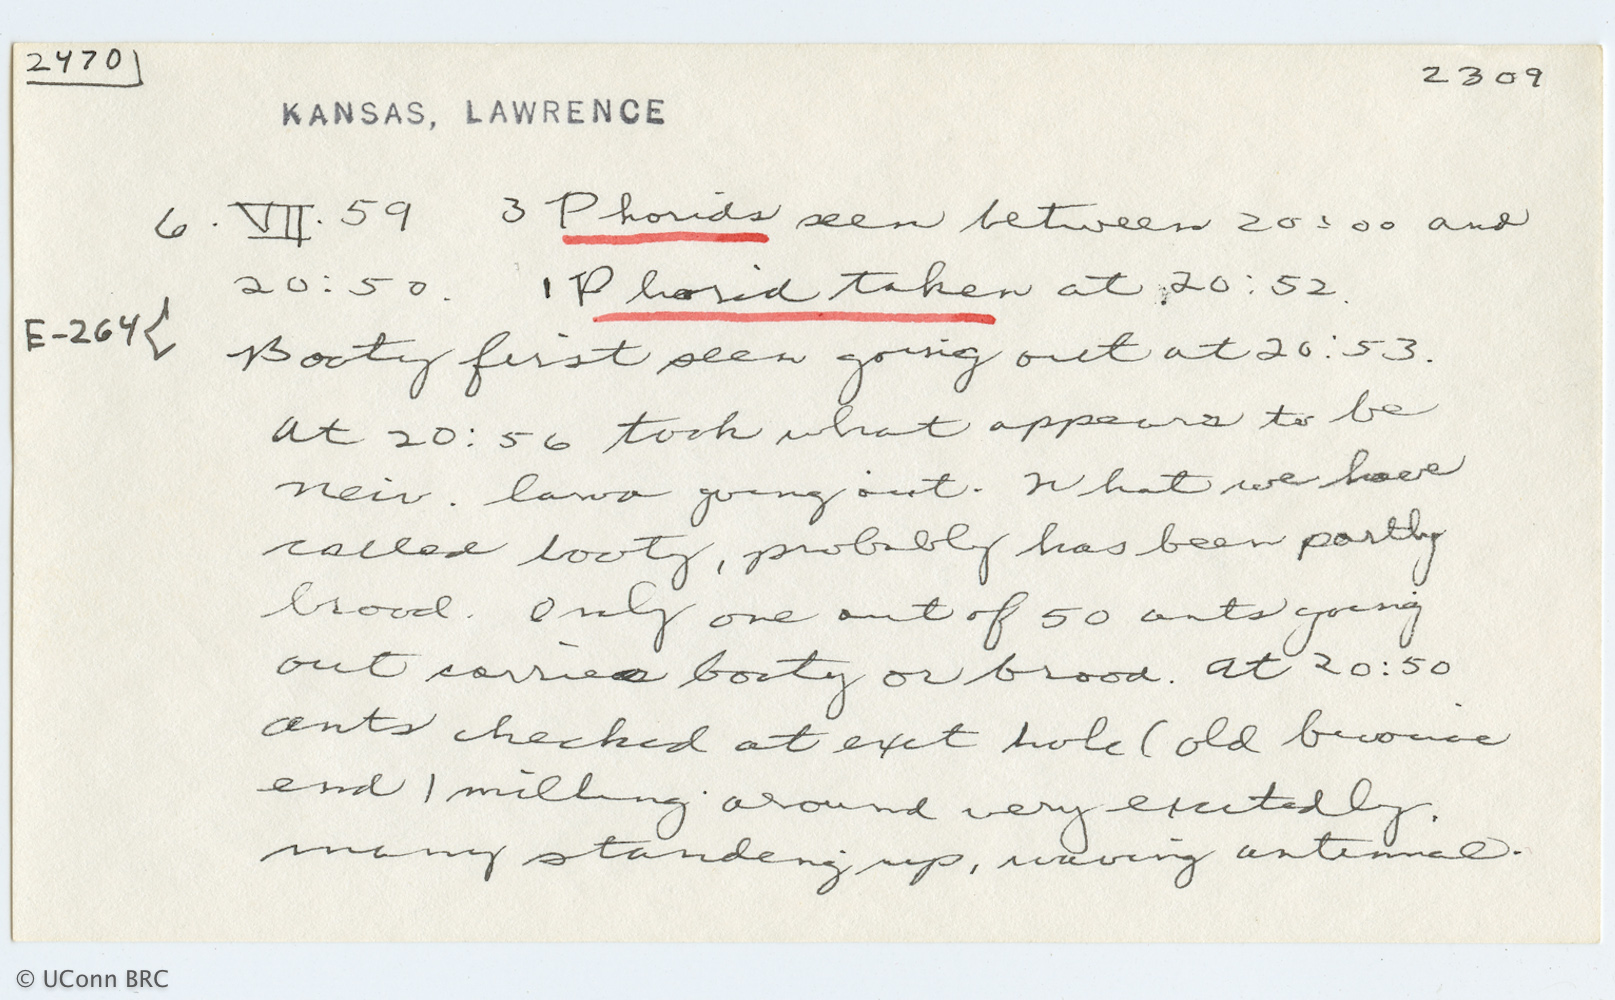 2470
2309
KANSAS, LAWRENCE
6. VII. 59 3 Phorids seen between 20:00 and
20:50. 1 Phorid taken at 20:52.
E-264
Booty first seen going out at 20:53.
At 20:56 took what appears to be
Neiv. larva going out. What we have
called booty, probably has been partly
brood. Only one out of 50 ants going
out carries booty or brood. At 20:50
ants checked at exit hole (old bivouac
end) milling around very excitedly.
many standing up, waving antennae.
© UConn BRC